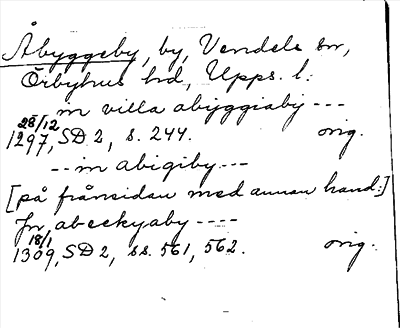 Åbyggeby, by, Vendels sn,
Örbyhus hd, Upps. l.:
in villa abyggiaby ---
28/12 1297, SD 2, s. 244. orig.
-- in abigiby ---
[på frånsidan med annan hand:]
Jn abeckyaby ----
18/1 1309, SD 2, ss. 561, 562. orig.